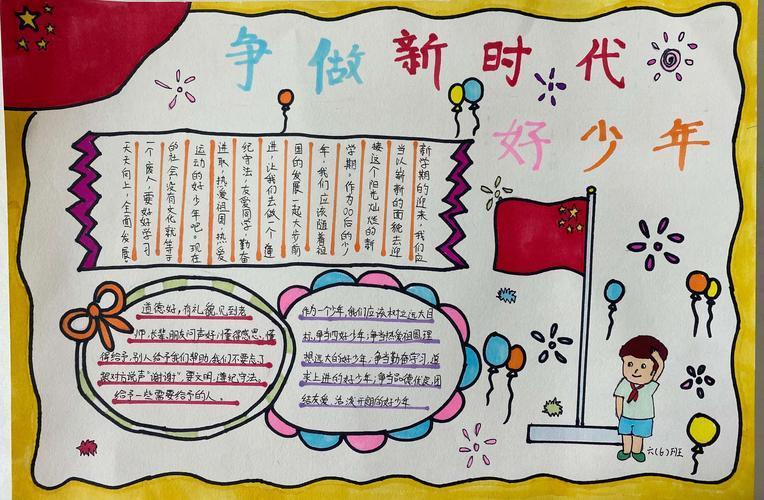 争做新时代
好少年
新学期的迎来，我们应
当以崭新的面貌去迎
接这个阳光灿烂的新
学期，作为00后的少
年，我们应该随着祖
国的发展一起大步前
进，让我们去做一个遵
纪守法，友爱同学，勤奋
进取，热爱祖国，热爱
运动的好少年吧。现在
的社会没有文化就等于
一个废人，要好好学习
天天向上，全面发展。
道德好，有礼貌，见到老
师、长辈、朋友问声好，懂得感恩，懂
得给予，别人给予我们帮助，我们不要忘了
跟对方说声“谢谢”，要文明，遵纪守法。
给予一些需要给予的人。
作为一个少年，我们应该树立远大目
标，争当四好少年；争当热爱祖国，理
想远大的好少年，争当勤奋学习，追
求上进的好少年；争当品德优良，团
结友爱、活泼开朗的好少年
六(6)班